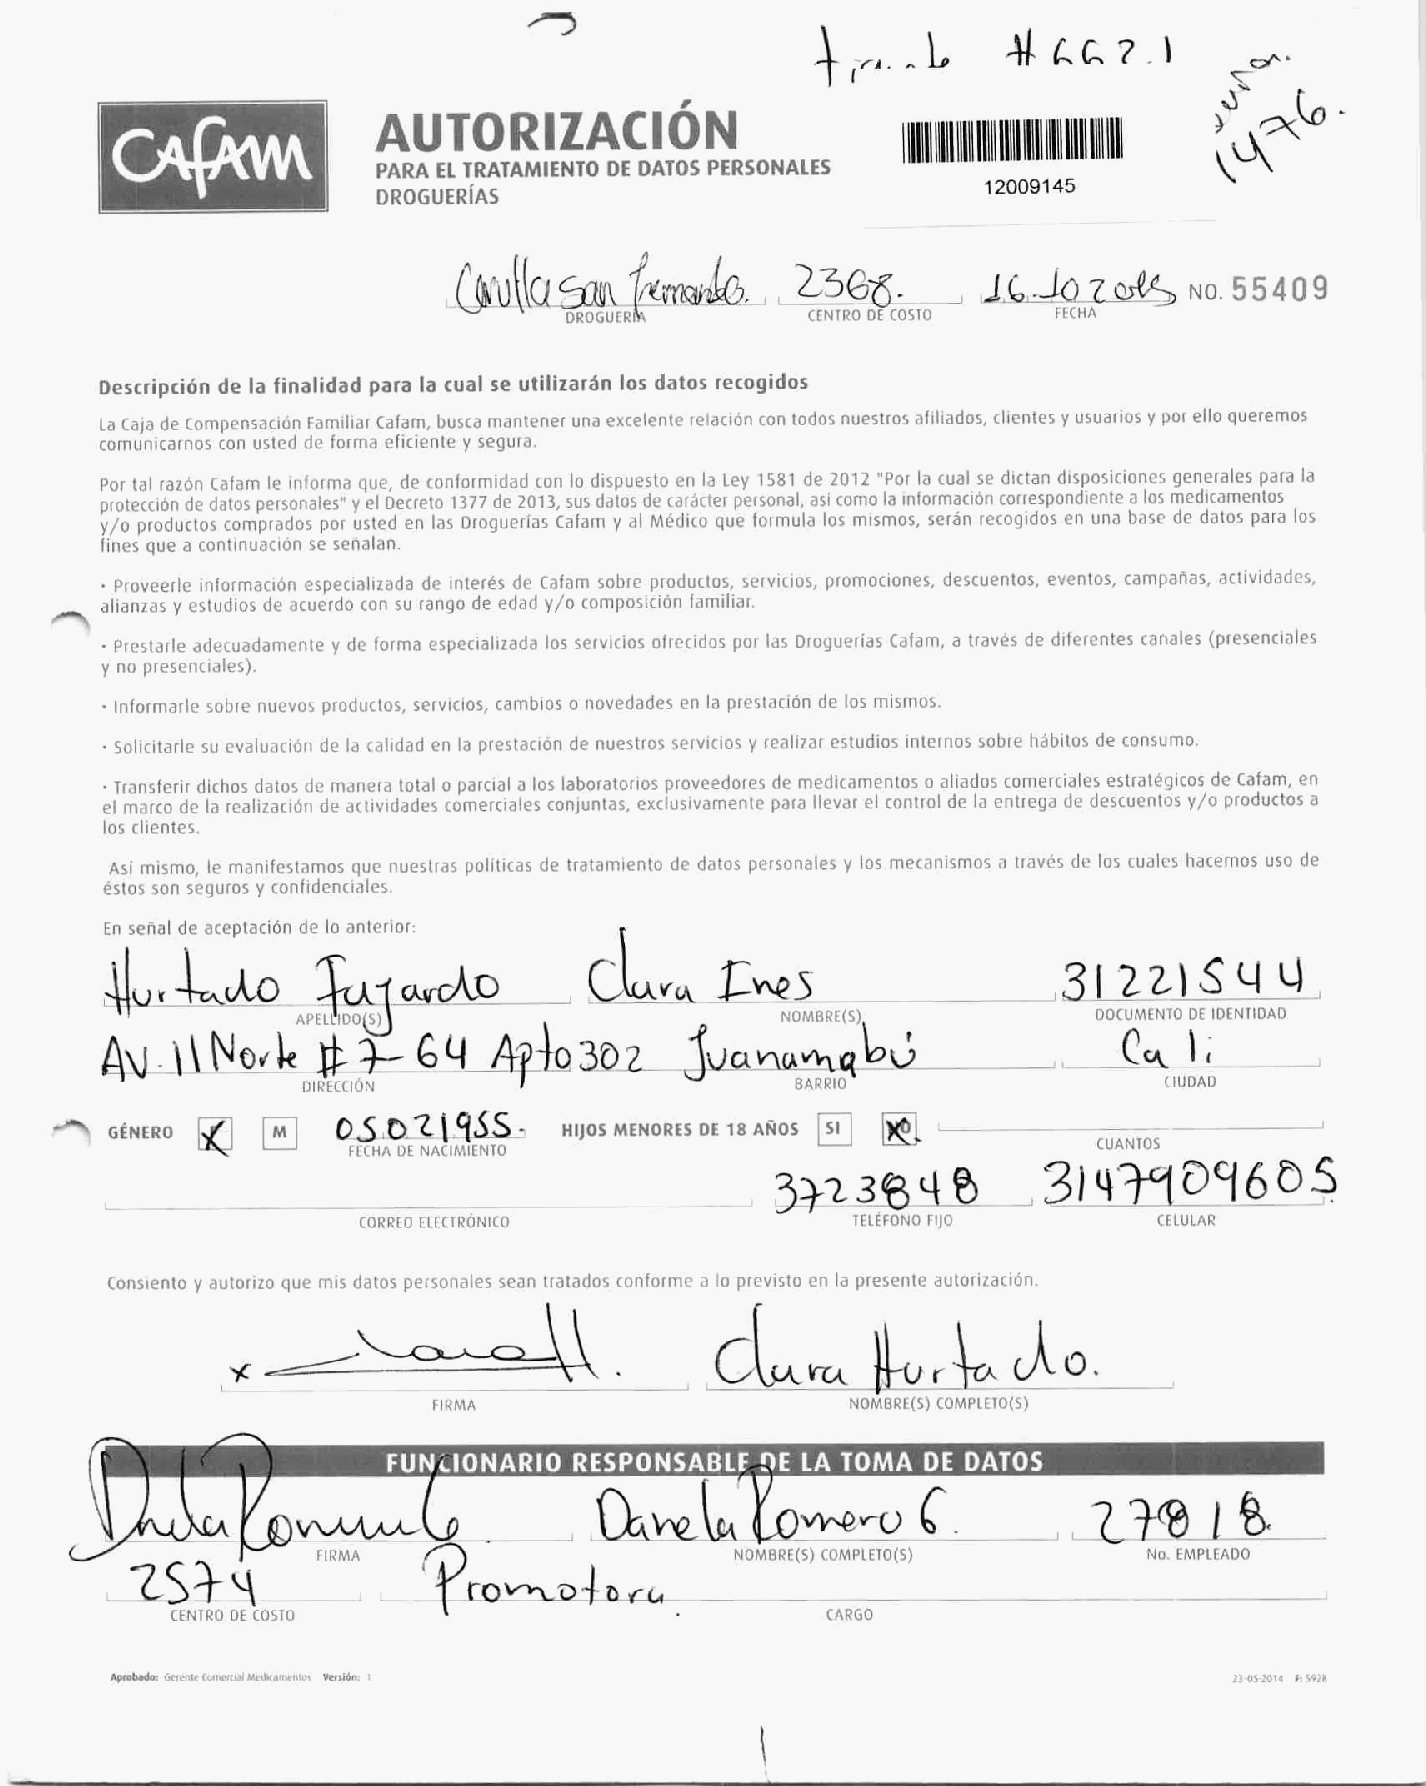 #662.1
1476.
CAFAM
AUTORIZACIÓN
PARA EL TRATAMIENTO DE DATOS PERSONALES
DROGUERÍAS
12009145
Carulla San Fernando. 2368. 16.10 2015 NO. 55409
DROGUERÍA CENTRO DE COSTO FECHA
Descripción de la finalidad para la cual se utilizarán los datos recogidos
La Caja de Compensación Familiar Cafam, busca mantener una excelente relación con todos nuestros afiliados, clientes y usuarios y por ello queremos
comunicarnos con usted de forma eficiente y segura.
Por tal razón Cafam le informa que, de conformidad con lo dispuesto en la Ley 1581 de 2012 "Por la cual se dictan disposiciones generales para la
protección de datos personales" y el Decreto 1377 de 2013, sus datos de carácter personal, asi como la información correspondiente a los medicamentos
y/o productos comprados por usted en las Droguerías Cafam y al Médico que formula los mismos, serán recogidos en una base de datos para los
fines que a continuación se señalan.
· Proveerle información especializada de interés de Cafam sobre productos, servicios, promociones, descuentos, eventos, campañas, actividades,
alianzas y estudios de acuerdo con su rango de edad y/o composición familiar.
· Prestarle adecuadamente y de forma especializada los servicios ofrecidos por las Droguerías Cafam, a través de diferentes canales (presenciales
y no presenciales).
· Informarle sobre nuevos productos, servicios, cambios o novedades en la prestación de los mismos.
· Solicitarle su evaluación de la calidad en la prestación de nuestros servicios y realizar estudios internos sobre hábitos de consumo.
· Transferir dichos datos de manera total o parcial a los laboratorios proveedores de medicamentos o aliados comerciales estratégicos de Cafam, en
el marco de la realización de actividades comerciales conjuntas, exclusivamente para llevar el control de la entrega de descuentos y/o productos a
los clientes.
Así mismo, le manifestamos que nuestras políticas de tratamiento de datos personales y los mecanismos a través de los cuales hacemos uso de
éstos son seguros y confidenciales.
En señal de aceptación de lo anterior:
Hurtado Fajardo Clara Ines 31221544
APELLIDO(S) NOMBRE(S) DOCUMENTO DE IDENTIDAD
AV. 11 Norte # 7-64 Apto 302 Juanamabú Cali
DIRECCIÓN BARRIO CIUDAD
GÉNERO X M 05021955. HIJOS MENORES DE 18 AÑOS SI X
FECHA DE NACIMIENTO CUANTOS
3723848 3147909605
CORREO ELECTRÓNICO TELÉFONO FIJO CELULAR
Consiento y autorizo que mis datos personales sean tratados conforme a lo previsto en la presente autorización.
x Clara Hurtado.
FIRMA NOMBRE(S) COMPLETO(S)
FUNCIONARIO RESPONSABLE DE LA TOMA DE DATOS
Daniela Romero G. 27818
FIRMA NOMBRE(S) COMPLETO(S) No. EMPLEADO
2574 Promotora
CENTRO DE COSTO CARGO
Aprobado: Gerente Comercial Medicamentos Versión: 1 23-05-2014 F: 5928